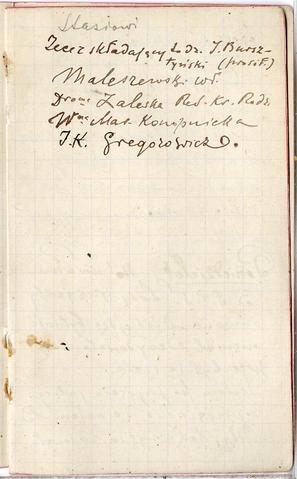 Stasiowi
Zecer składający Ludz. J. Bursz-
tyński (prosił)
Maleszewski wł.
Drowa Zaleska Red. Kr. Rodz.
Wna Mar. Konopnicka
J. K. Gregorowicz.